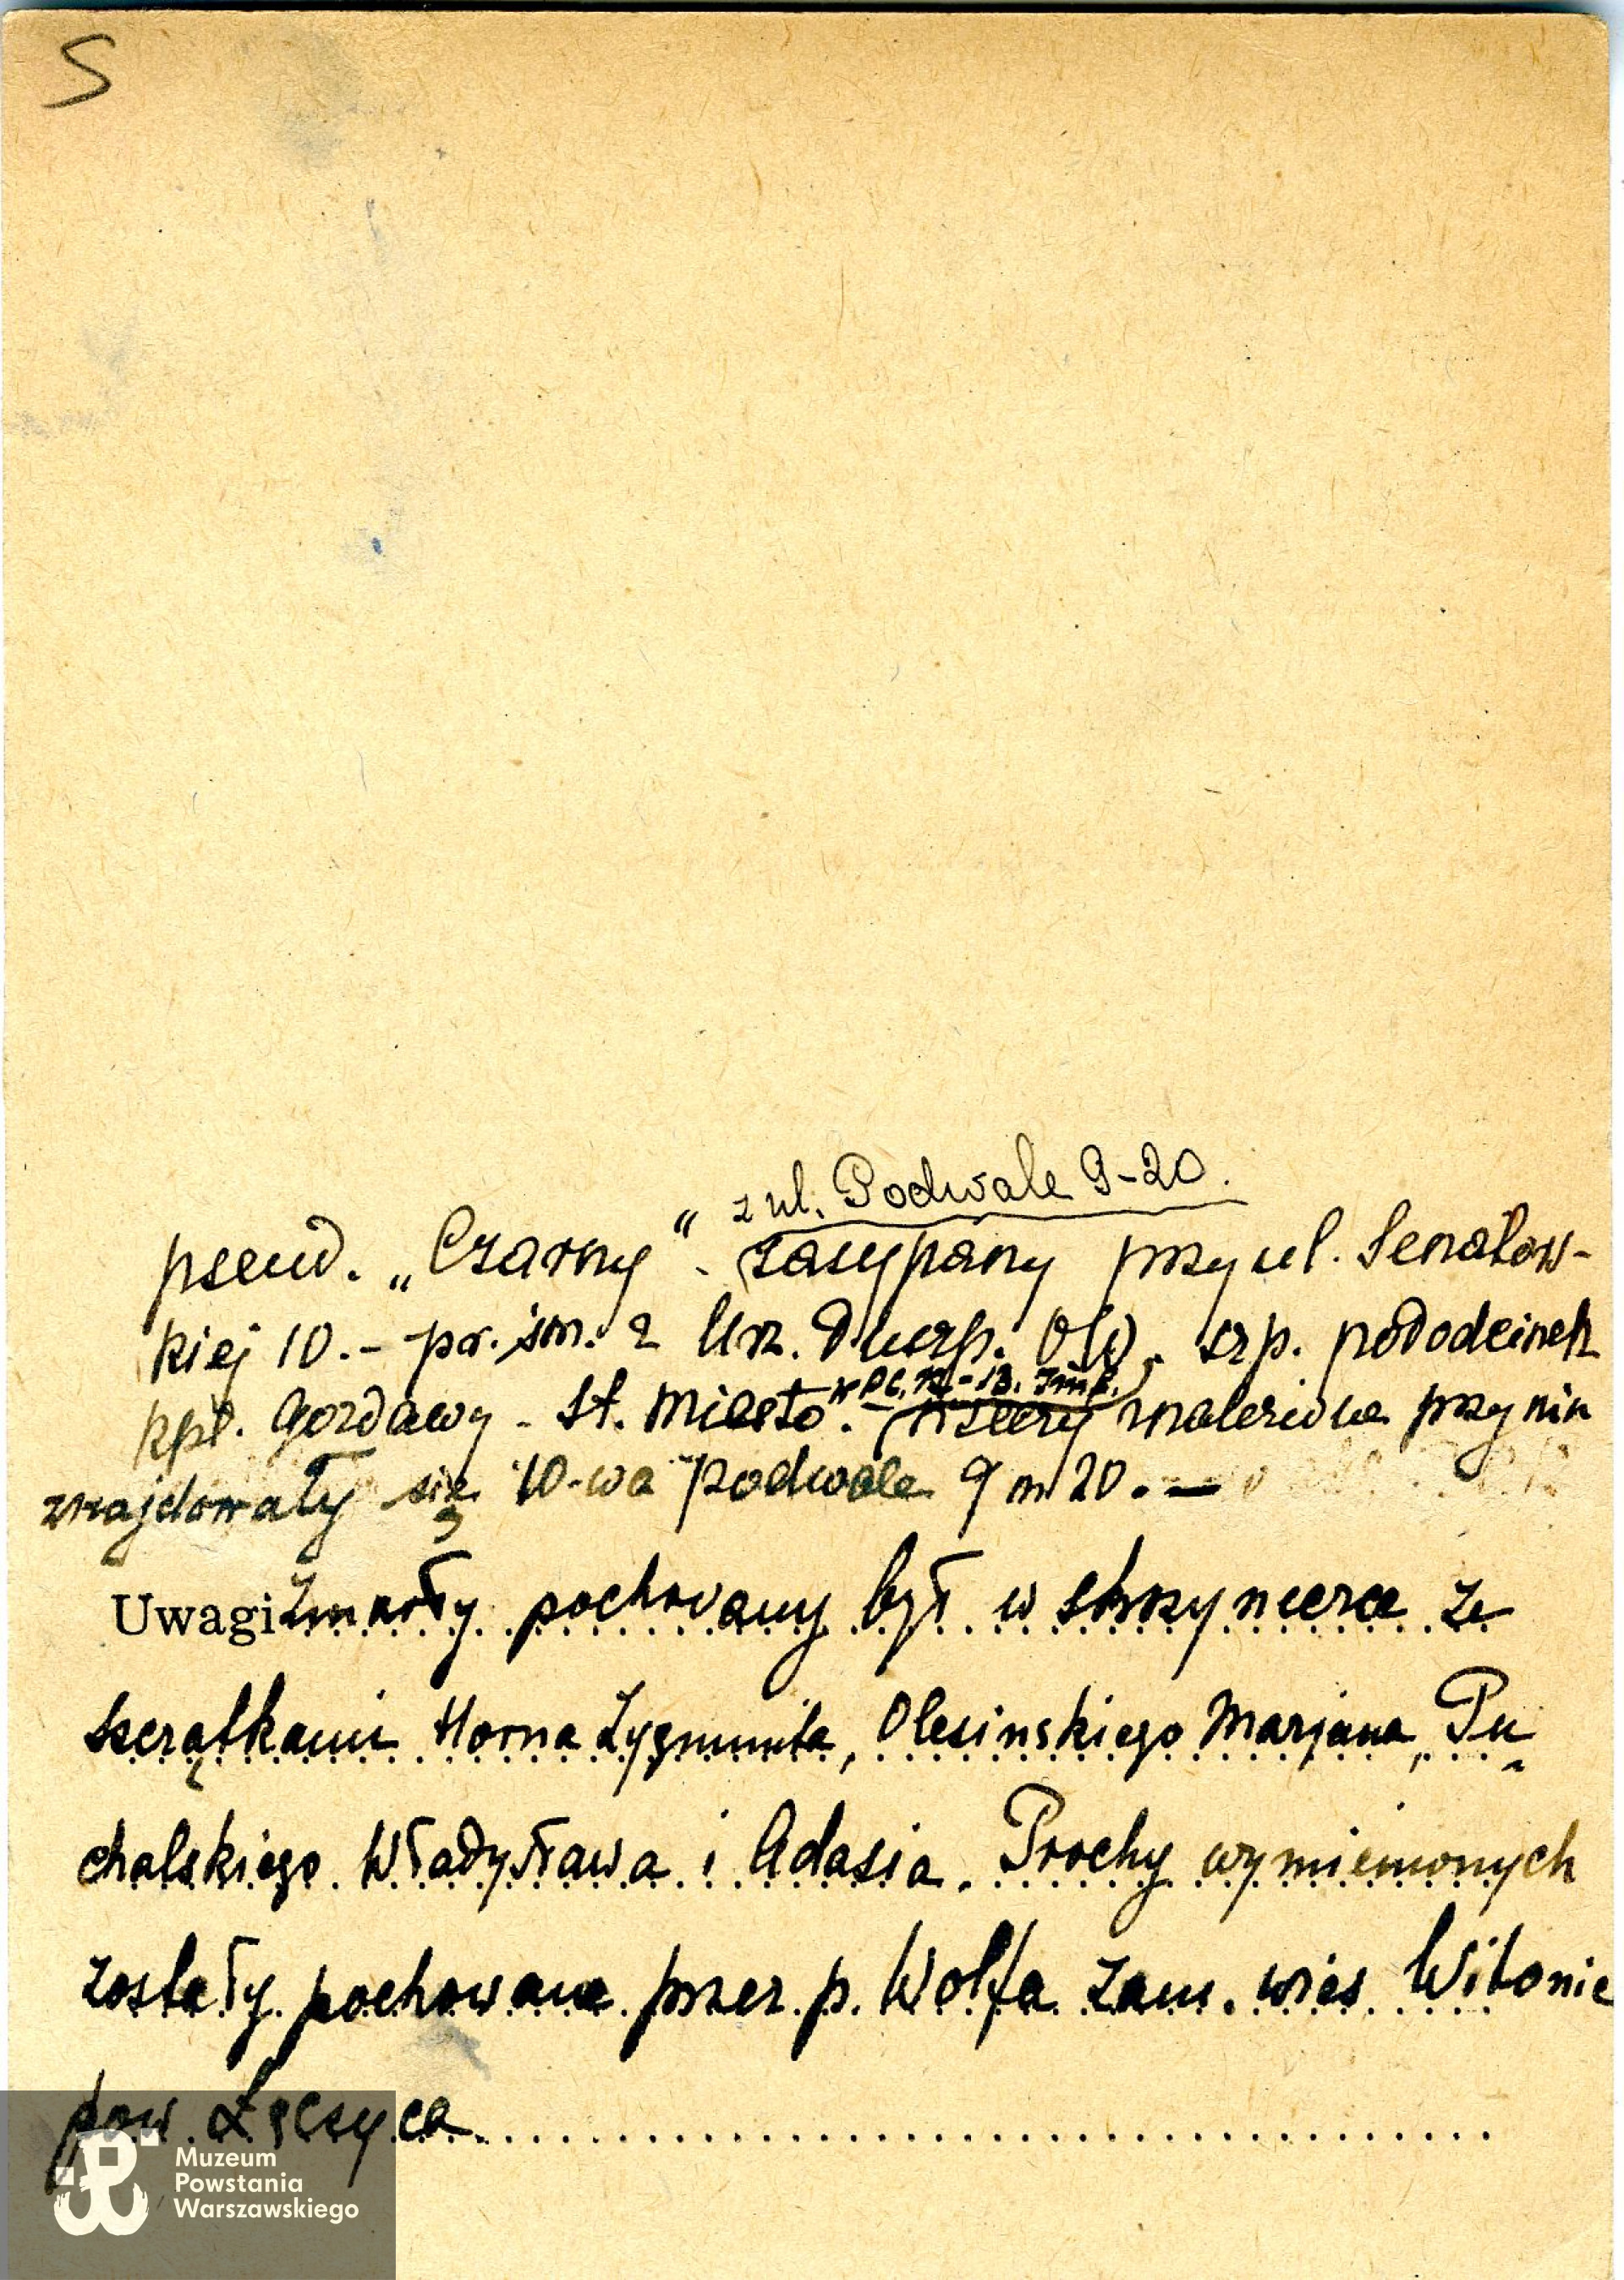 S
z ul. Podwale 9-20.
pseud. „Czarny" - zasypany przy ul. Senatow-
kiej 10. - pr. śm. 2 Urz. D
kpt. Gozdawy - St. Miasto. rzeczy znalezione przy nim
znajdowały się 10-wa Podwale 9 m 20. —
Uwagi Zmarły pochowany był w skrzyneczce ze
szczątkami Horna Zygmunta, Olesinskiego Marjana, Pu
chalskiego Władysława i Adasia. Prochy wymienionych
zostały pochowane przez p. Wolfa zam. wieś Witonie
pow. Łęczyca
Muzeum
Powstania
Warszawskiego